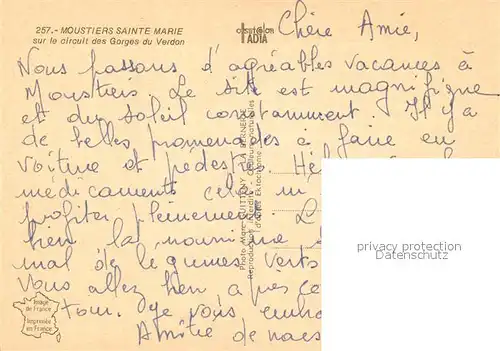 257.- MOUSTIERS SAINTE MARIE
sur le circuit des Gorges du Verdon
Chère Amie,
Nous passons d'agréables vacances à
Moustiers. Le site est magnifique
et du soleil constamment. Il y a
de belles promenades à faire en
voiture et pédestre. Hé
médicaments cela m
profiter pleinement. L
bien la nourriture
mal de légumes verts
Vous allez bien après ce
tour. Je vous embra
Amitié de nous
Image
de France
Imprimée
en France
privacy protection
Datenschutz